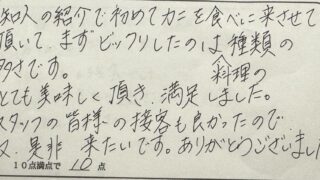 知人の紹介で初めてカニを食べに来させて
頂いて、まずビックリしたのは種類の
料理の
多さです。
とても美味しく頂き、満足しました。
スタッフの皆様の接客も良かったので
又、是非 来たいです。ありがとうございまし
10点満点で 10 点